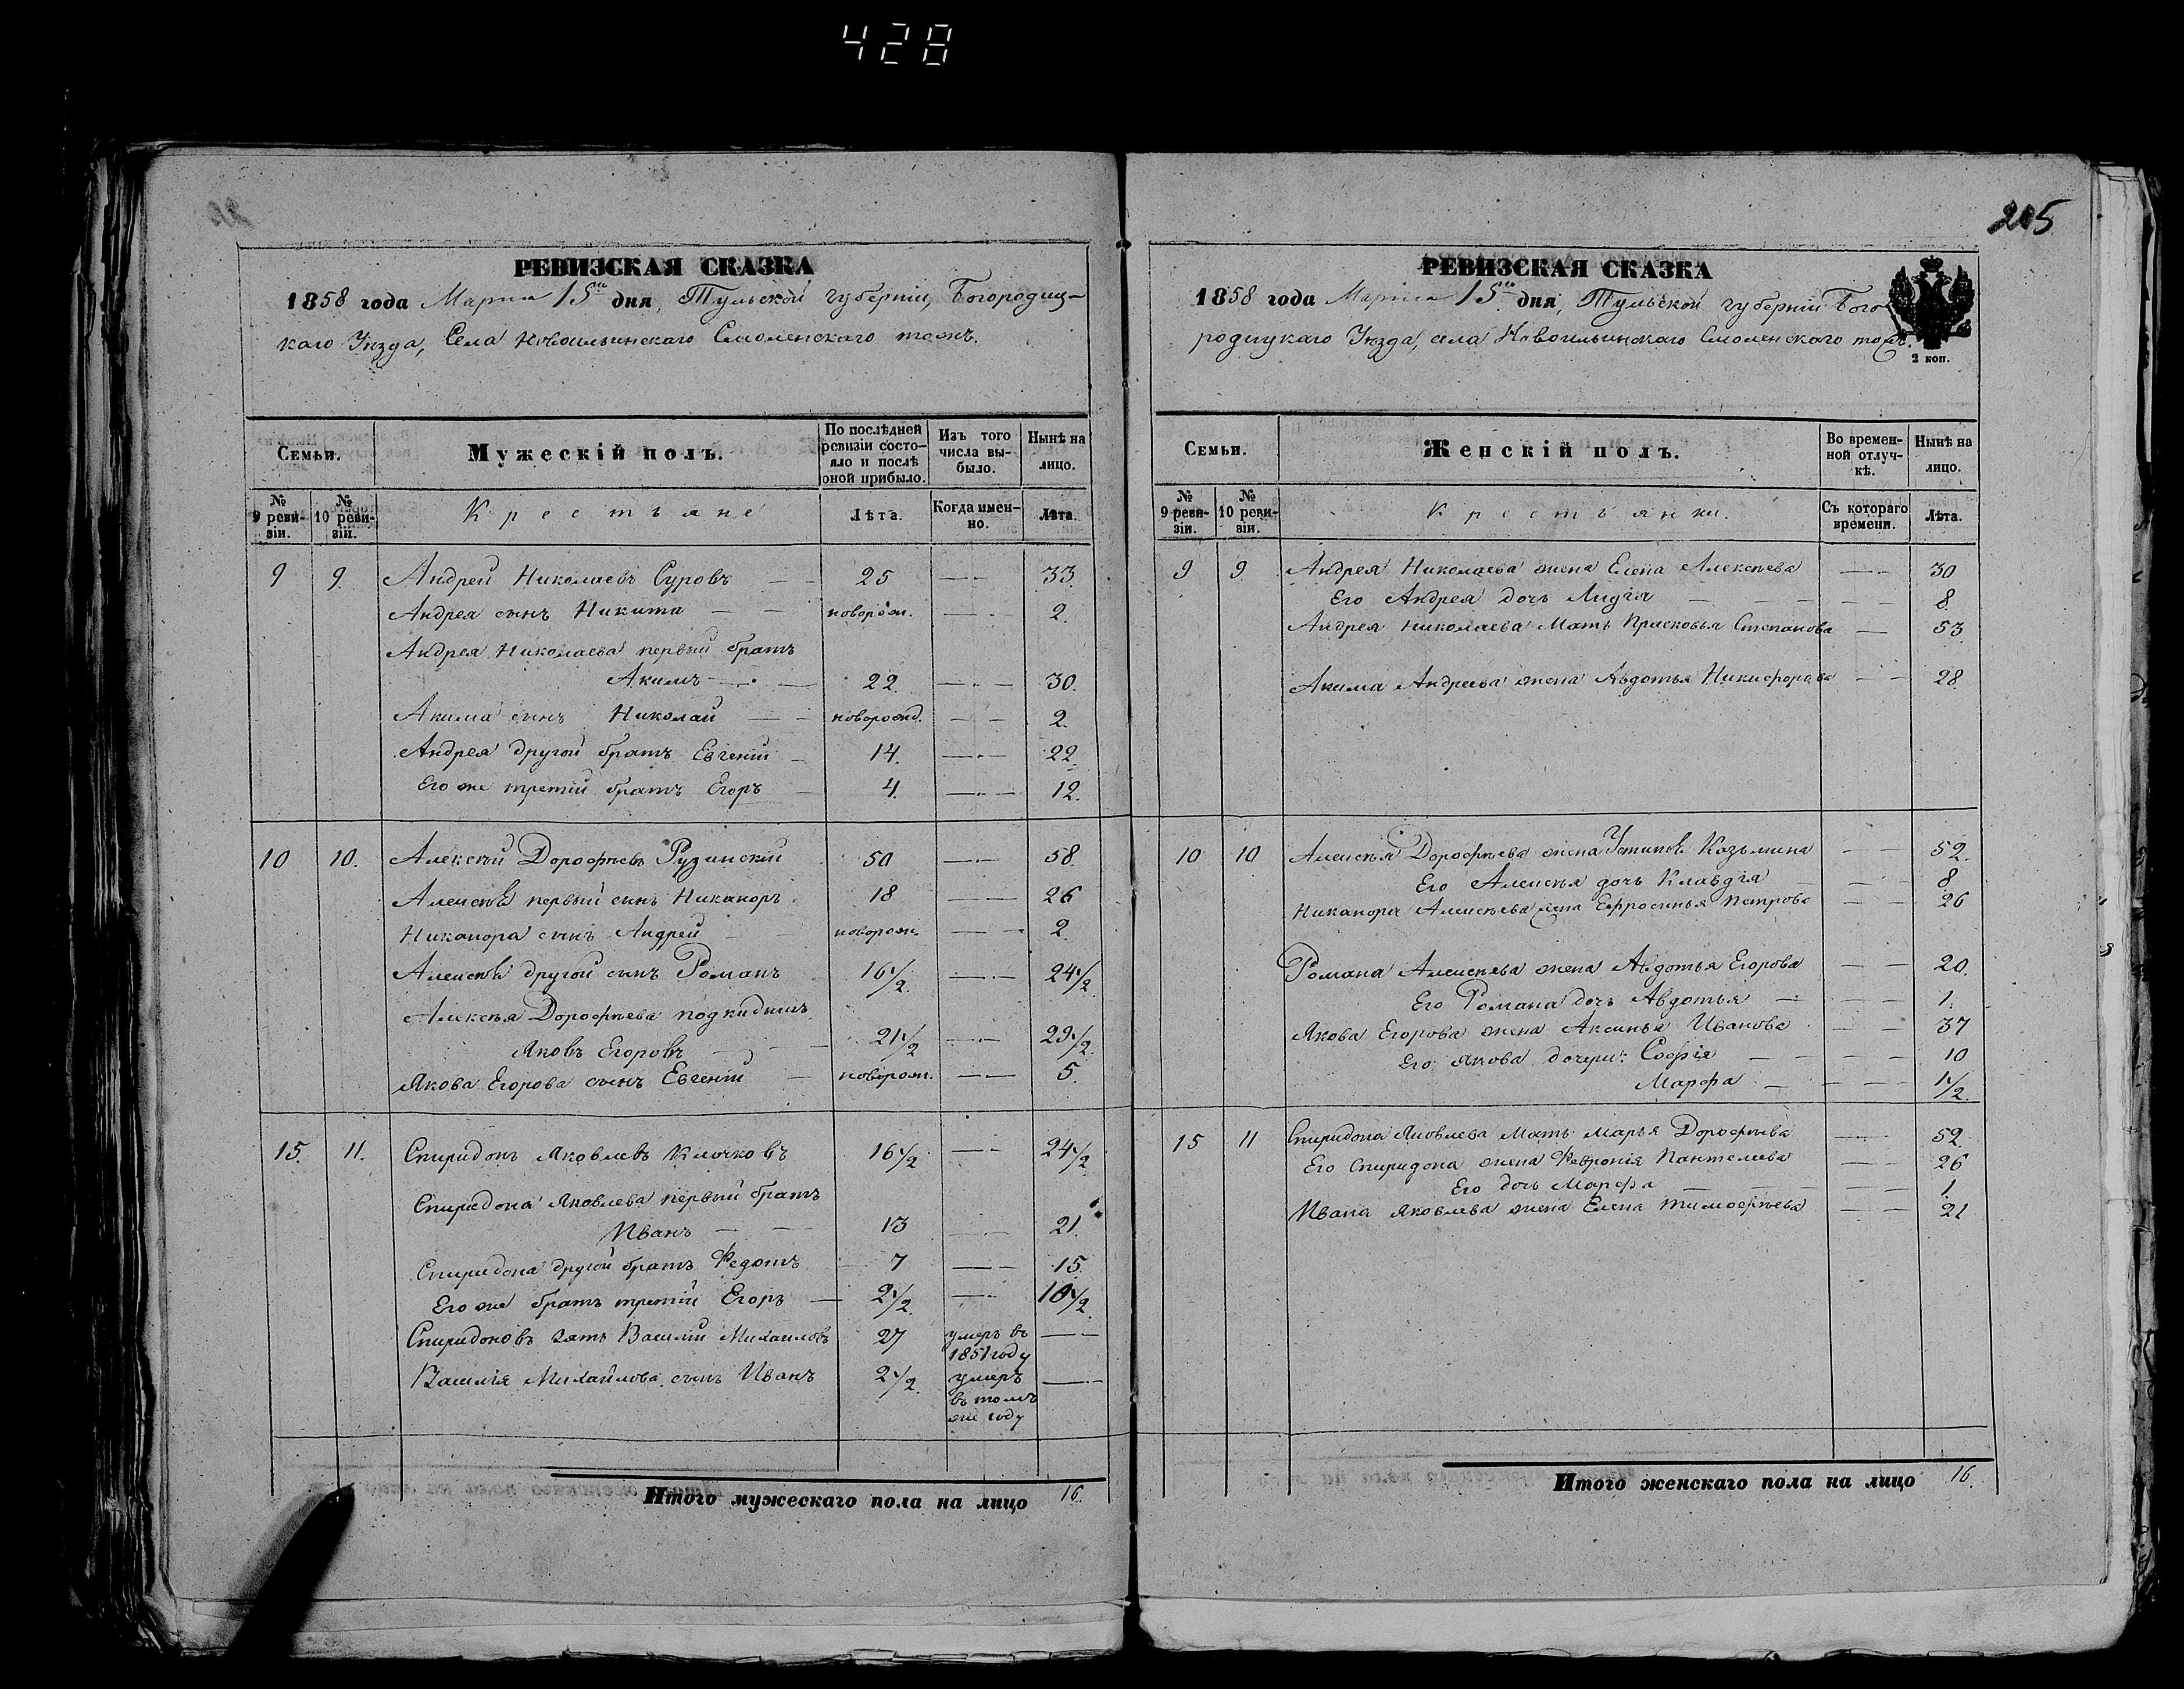 428
205
РЕВИЗСКАЯ СКАЗКА
1858 года Марта 15го дня, Тульской губерніи, Богородиц-
каго Уѣзда, Села Новоильинскаго Смоленскаго тожъ.
Семьи.
Мужескій полъ.
По послѣдней ревизіи состо-яло и послѣ оной прибыло.
Изъ того числа вы-было.
Нынѣ на лицо.
№ 9 реви-зіи.
№ 10 реви-зіи.
Крестьяне
Лѣта.
Когда имен-но.
Лѣта.
9 9. Андрей Николаевъ Суровъ — 25 — 33.
Андрея сынъ Никита — — новорож. — 2.
Андрея Николаева первый братъ
Акимъ — 22. — 30.
Акима сынъ Николай — новорожд. — 2.
Андрея другой братъ Евгеній — 14. — 22.
Его же третій братъ Егоръ — 4. — 12.
10 10. Алексѣй Дорофѣевъ Рузинскій 50 — 58.
Алексѣя первый сынъ Никаноръ 18 — 26
Никанора сынъ Андрей — новорож. — 2.
Алексѣя другой сынъ Романъ 16 1/2. — 24 1/2.
Алексѣя Дорофѣева подкидышъ
Яковъ Егоровъ — 21 1/2 — 29 1/2.
Якова Егорова сынъ Евгеній — новорож. — 5.
15. 11. Спиридонъ Яковлевъ Клочковъ 16 1/2 — 24 1/2
Спиридона Яковлева первый братъ
Иванъ — — 13 — 21.
Спиридона другой братъ Федотъ 7 — 15.
Его же братъ третій Егоръ — 2 1/2. — 10 1/2.
Спиридоновъ зять Василій Михаиловъ 27 умеръ въ 1851 году —
Василія Михайлова сынъ Иванъ 2 1/2. умеръ въ томъ же году —
Итого мужескаго пола на лицо 16.
РЕВИЗСКАЯ СКАЗКА
1858 года Марта 15го дня, Тульской губерніи Бого
родицкаго Уѣзда, села Новоильинскаго Смоленскаго тожъ.
2 коп.
Семьи.
Женскій полъ.
Во времен-ной отлуч-кѣ.
Нынѣ на лицо.
№ 9 реви-зіи.
№ 10 реви-зіи.
Крестьянки.
Съ котораго времени.
Лѣта.
9 9 Андрея Николаева жена Елена Алексѣева — 30
Его Андрея дочь Лидія — — 8.
Андрея Николаева Мать Прасковья Степанова — 53
Акима Андреева жена Авдотья Никифорова — 28.
10 10 Алексѣя Дорофѣева жена Устинья Козьмина — 52.
Его Алексѣя дочь Клавдія — 8.
Никанора Алексѣева жена Ефросинья Петрова — 26
Романа Алексѣева жена Авдотья Егорова — 20.
Его Романа дочь Авдотья — — 1.
Якова Егорова жена Аксинья Иванова — 37
Его Якова дочери: Софія — — 10
Марфа — — 1 1/2.
15 11 Спиридона Яковлева Мать Марья Дорофѣева — 52.
Его Спиридона жена Февронія Пантелѣева — 26
Его дочь Марфа — — 1.
Ивана Яковлева жена Елена Тимофѣева — 21
Итого женскаго пола на лицо 16.